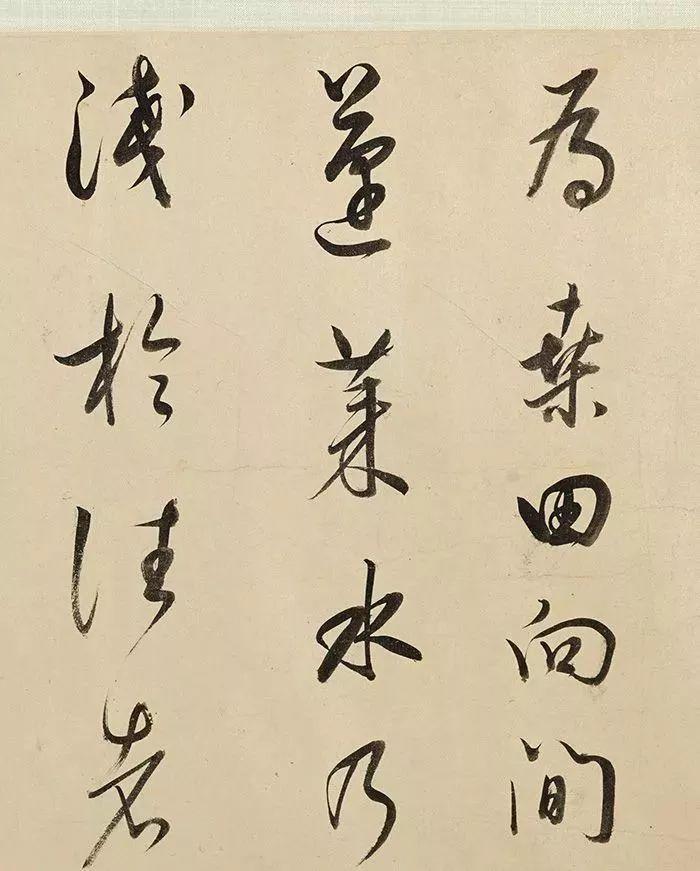 為桑田向間
蓬莱水乃
淺於往者